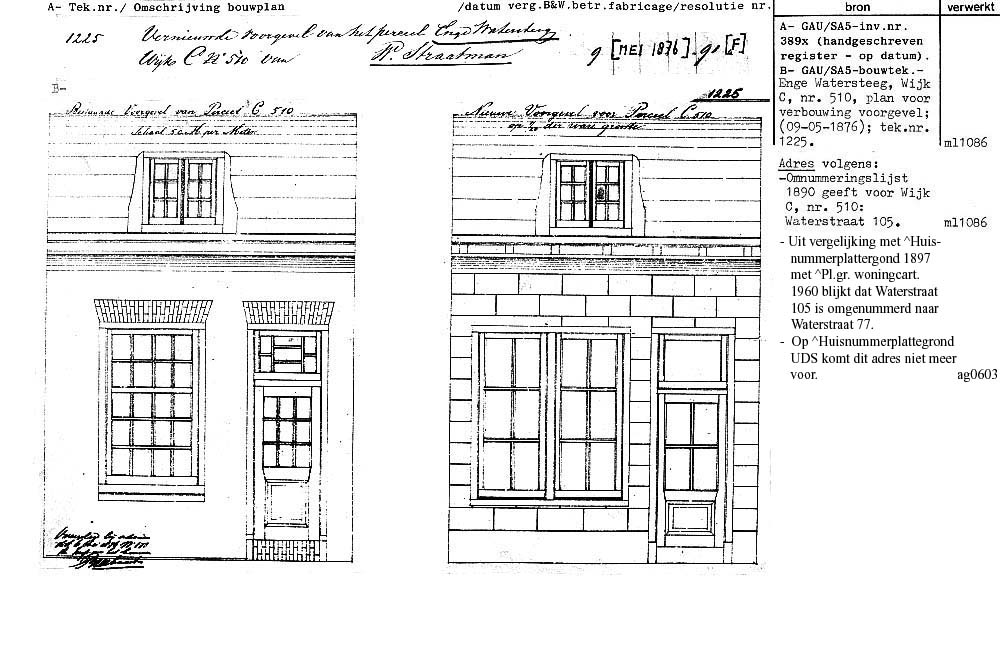 A- Tek.nr./ Omschrijving bouwplan
/datum verg.B&W.betr.fabricage/resolutie nr.
bron
verwerkt
1225 Vernieuwde voorgevel van het perceel Enge Watersteeg
Wijk C No 510 van W. Straatman
9 [MEI 1876] [F]
A- GAU/SA5-inv.nr.
389x (handgeschreven
register - op datum).
B- GAU/SA5-bouwtek.-
Enge Watersteeg, Wijk
C, nr. 510, plan voor
verbouwing voorgevel;
(09-05-1876); tek.nr.
1225. ml1086
Adres volgens:
-Omnummeringslijst
1890 geeft voor Wijk
C, nr. 510:
Waterstraat 105. ml1086
- Uit vergelijking met ^Huis-
nummerplattergond 1897
met ^Pl.gr. woningcart.
1960 blijkt dat Waterstraat
105 is omgenummerd naar
Waterstraat 77.
- Op ^Huisnummerplattegrond
UDS komt dit adres niet meer
voor. ag0603
B-
Bestaande Voorgevel van Perceel C 510
Schaal per Meter
1225
Nieuwe Voorgevel voor Perceel C. 510
op der ware grootte